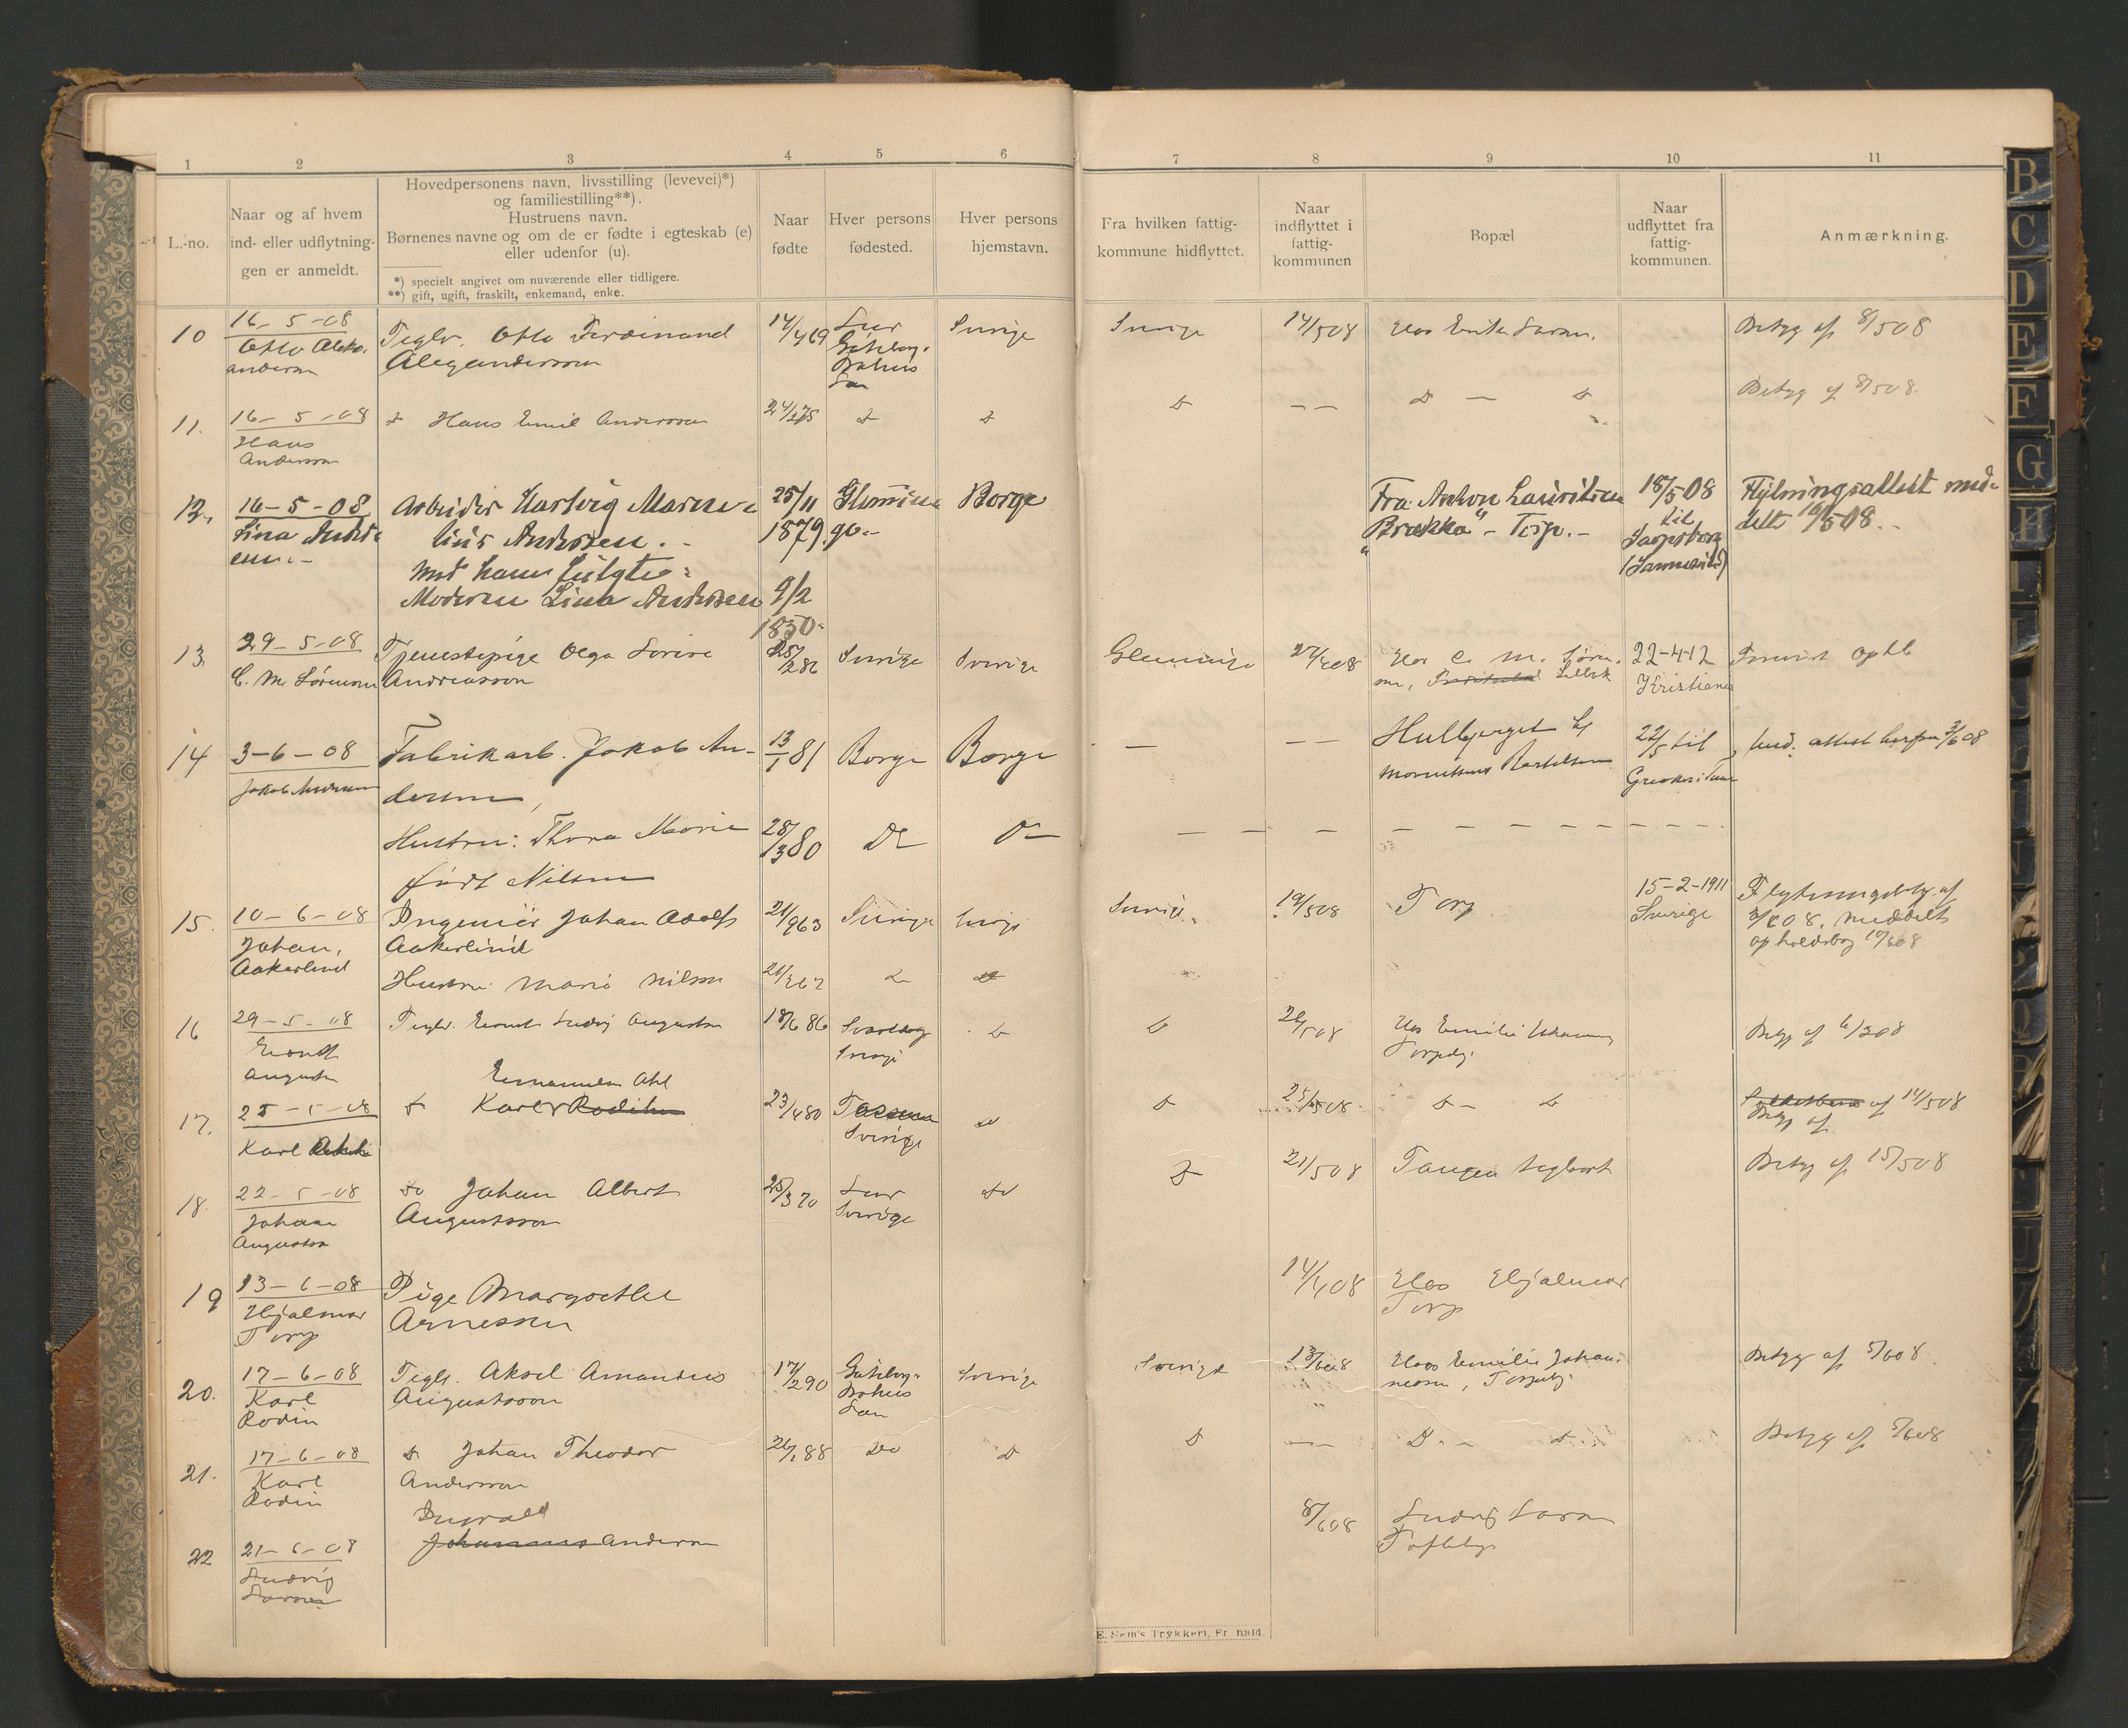 1 2 3 4 5 6 7 8 9 10 11
L.-no.
Naar og af hvem
ind- eller udflytning-
gen er anmeldt.
Hovedpersonens navn, livsstilling (levevei)*)
og familiestilling**).
Hustruens navn.
Børnenes navne og om de er fødte i egteskab (e)
eller udenfor (u).
*) specielt angivet om nuværende eller tidligere.
**) gift, ugift, fraskilt, enkemand, enke.
Naar
fødte
Hver persons
fødested.
Hver persons
hjemstavn.
Fra hvilken fattig-
kommune hidflyttet.
Naar
indflyttet i
fattig-
kommunen
Bopæl
Naar
udflyttet fra
fattig-
kommunen.
Anmærkning.
10
16-5-08
Otto Alex-
anderson
Teglv. Otto Ferdinand
Alexandersson
14/4 69
Lur
Göteborg-
Bohus
Län
Sverige
Sverige
14/5 08
Hos
Betyg af 8/5 08
11.
16-5-08
Hans
Andersson
Do Hans Emil Andersson
Do
Do
Do
— —
Do — Do
Betyg af 8/5 08.
12.
16-5-08
Lina Anders-
en.-
Arbeider Hartvig Marine-
lius Andersen.-
Med ham følgte:
Moderen Lina Andersen
25/11
1879
9/2
1850.
Glemmin-
ge.-
Borge
Fra: Anton Lauritsen
"Brække" - Torp.-
18/5 08
til
Sarpsborg
Flytningsattest med-
delt 16/5 08.-
13.
29-5-08
C. M. Sørensen
Tjenestepige Olga
Andreasson
25/2 86
Sverige
Sverige
Glemminge
27/4 08
Hos C. M. Søren-
sen,
22-4-12
Kristiania
14
3-6-08
Jakob Andersen
Fabrikarb. Jakob An-
dersen,
Hustru: Thora Marie
født Nilsen
13/1 81
28/3 80
Borge
Do
Borge
Do
— — —
Hulbjerget
22/5 til
15.
10-6-08
Johan
Aakerlind
Ingeniør Johan Adolf
Aakerlind
Hustru: Maria Nilsson
21/9 63
Sverige
Sverige
Do
Do
Sverige.
19/5 08
Torp
15-2-1911
Sverige
Flytningsbetyg af
meddelt
opholdsbog 10/6 08
16
29-5-08
Ernst
Augustson
Teglv. Ernst Ludvig Augustson
18/6 86
Svarteborg
Sverige
Do
Do
26/5 08
Hos Emilie
Torpeby
Betyg af
17.
25-5-08
Karl
Do Karl
Emanuel Ahl
23/4 80
Sverige
Do
Do
25/5 08
Do - Do
af 14/5 08
Betyg af
18.
22-5-08
Johan
Augustson
Do Johan Albert
Augustsson
25/3 70
Lur
Sverige
Do
Do
21/5 08
Tangen teglverk
Betyg af 15/5 08
19
13-6-08
Hjalmar
Torp
Pige Margrethe
Arnessen
14/4 08
Hos Hjalmar
Torp
20.
17-6-08
Karl
Rodin
Teglv. Aksel Amandus
Augustsson
17/2 90
Göteborg-
Bohus
Län
Sverige
Sverige
13/6 08
Hos Emilie Johan-
nessen, Torpeby
Betyg af 5/6 08.
21.
17-6-08
Karl
Rodin
Do Johan Theodor
Andersson
26/1 88
Do
Do
Do
— —
Do - Do
Betyg af 5/6 08
22
21-6-08
Ludvig
Larsen
Ingvald
Johannes Andersen
8/6 08
Ludvig Larsen
Tofteby
E. Sem's Trykkeri, Fr.hald.
B
C
D
E
F
G
H